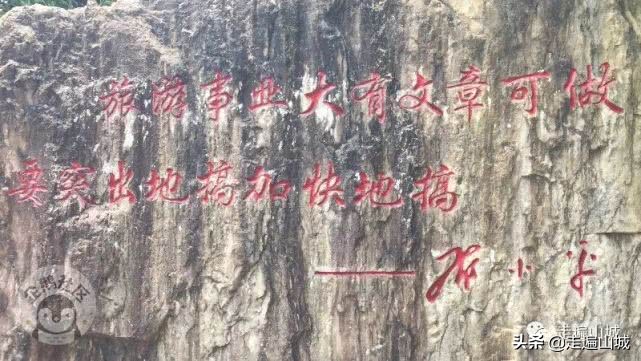 旅游事业大有文章可做
要突出地搞加快地搞
——邓小平
企鹅社区
走遍山城
头条@走遍山城